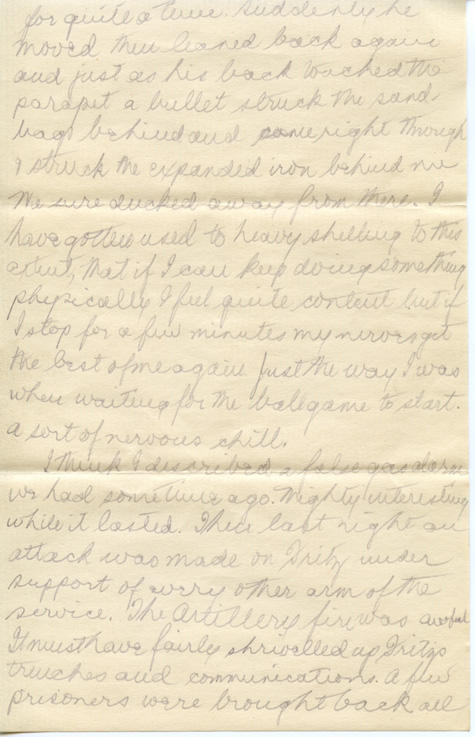 for quite a time. Suddenly he
moved then leaned back again
and just as his back touched the
parapet a bullet struck the sand-
bags behind and came right through
& struck the expanded iron behind me
We sure ducked away from there. I
have gotten used to heavy shelling to this
extent, that if I can keep doing something
physically I feel quite content but if
I stop for a few minutes my nerves get
the best of me again just the way I was
when waiting for the ball game to start.
a sort of nervous chill.
I think I described a false gas alarm
we had sometime ago. Mighty interesting
while it lasted. Then last night an
attack was made on Fritz under
support of every other arm of the
service. The Artillery fire was awful
It must have fairly shrivelled up Fritz's
trenches and communications. A few
prisoners were brought back all